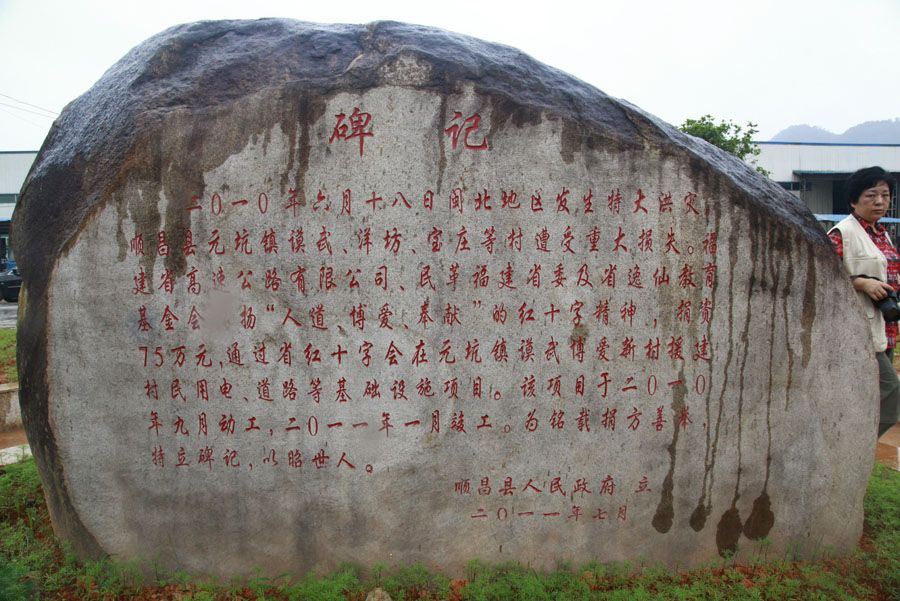 碑记
二〇一〇年六月十八日闽北地区发生特大洪灾,
顺昌县元坑镇谟武、洋坊、宝庄等村遭受重大损失。福
建省高速公路有限公司、民革福建省委及省逸仙教育
基金会 扬“人道、博爱、奉献”的红十字精神,捐资
75万元,通过省红十字会在元坑镇谟武博爱新村援建
村民用电、道路等基础设施项目。该项目于二〇一〇
年九月动工,二〇一一年一月竣工。为铭载捐方善举,
特立碑记,以昭世人。
顺昌县人民政府 立
二〇一一年七月